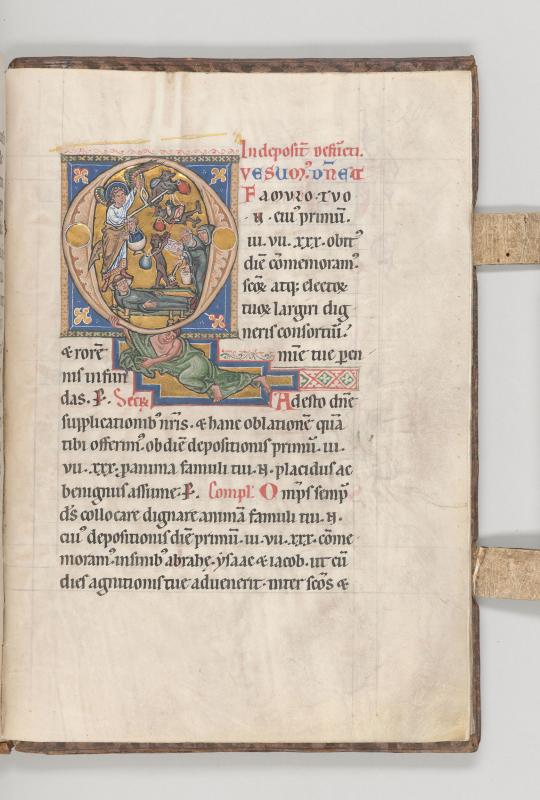 In deposit defuncti.
QVESUM9. DN̄E UT
FAMULO TUO
.N. cui9 primū.
.iii. vii. xxx. obit9
diē cōmemoram9
scōꝝ atq; electoꝝ
tuoꝝ largiri dig
neris consortiū.
& rorē mīe tue ꝑen
nis infun
das. P. Secr̄ Adesto dn̄e
supplicationib9 nr̄is. & hanc oblationē quā
tibi offerim9 ob diē depositionis primū. iii.
vii. xxx. p anima famuli tui. N. placidus ac
benignus assume. P. Compl. Omp̄s semp̄
d̄s collocare dignare animā famuli tui. N.
cui9 depositionis diē primū. iii. vii. xxx. cōme
moram9. in sinib9 abrahe. ysaac & iacob. ut cū
dies agnitionis tue advenerit. inter scōs &